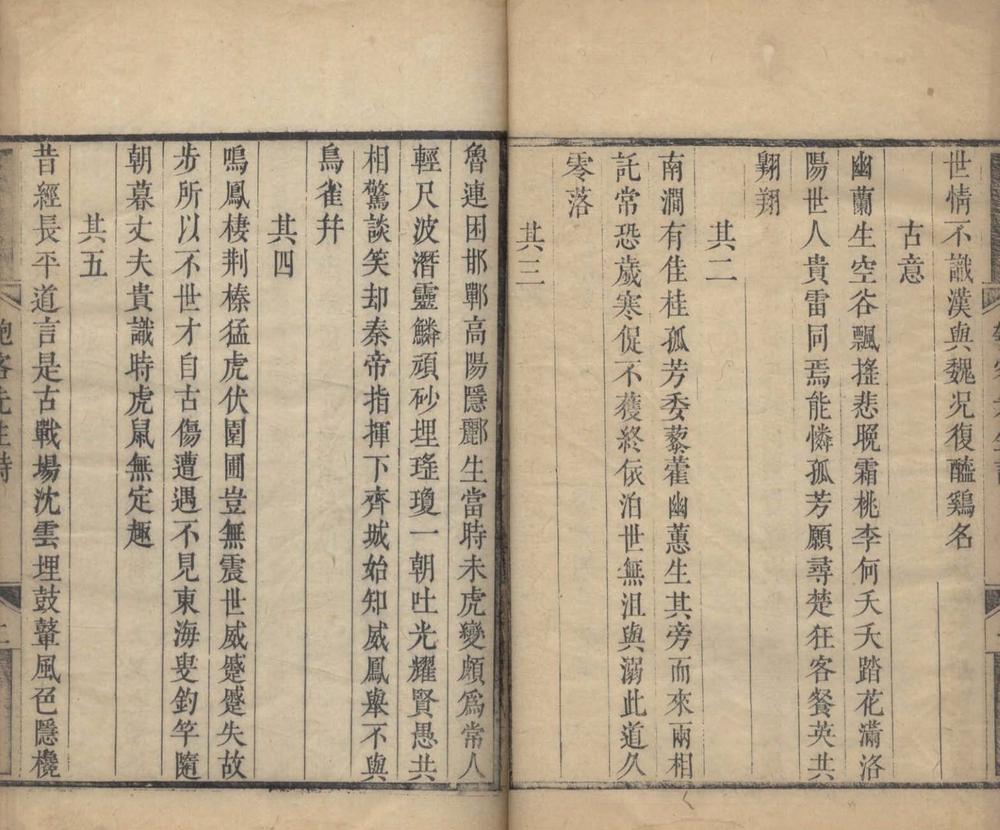 世情不識漢與魏况復醯鷄名
古意
幽蘭生空谷飄搖悲晩霜桃李何夭夭踏花滿洛
陽世人貴雷同焉能憐孤芳願尋楚狂客餐英共
翺翔
其二
南澗有佳桂孤芳委藜藿幽蕙生其旁而來兩相
託常恐歲寒促不獲終依泊世無沮與溺此道久
零落
其三
魯連困邯鄲高陽隱酈生當時未虎變頗爲常人
輕尺波潛靈鱗頑砂埋瑤瓊一朝吐光耀賢愚共
相驚談笑却秦帝指揮下齊城始知威鳳舉不與
鳥雀幷
其四
鳴鳳棲荆榛猛虎伏園圃豈無震世威蹙蹙失故
步所以不世才自古傷遭遇不見東海叟釣竿隨
朝暮丈夫貴識時虎鼠無定趣
其五
昔經長平道言是古戰場沈雲埋鼓鼙風色隱欃
先生詩
二